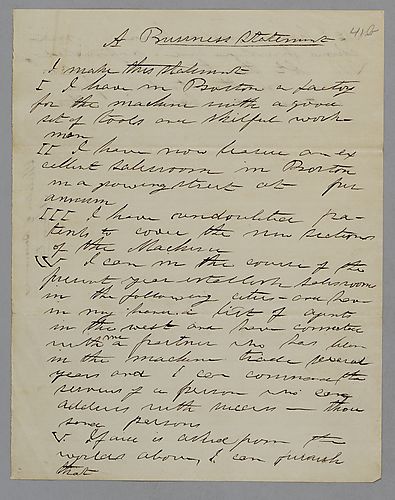 A Business Statement
I make this Statement
I I have in Boston a factory
for the machine with a good
set of tools and skilful work-
men
II I have now leased an ex
cellent salesroom in Boston
in a growing street at per
annum
III I have undoubted pa-
tents to cover the new sections
of the Machine
IV I can in the course of the
present year establish salesrooms
in the following cities - and have
in my hand a list of agents
in the west and have connected
with me a partner who has been
in the machine trade several
years and I can command the
services of a person who can
address with means - thou
sand persons
V. If one is asked from the
worlds above, I can furnish
that